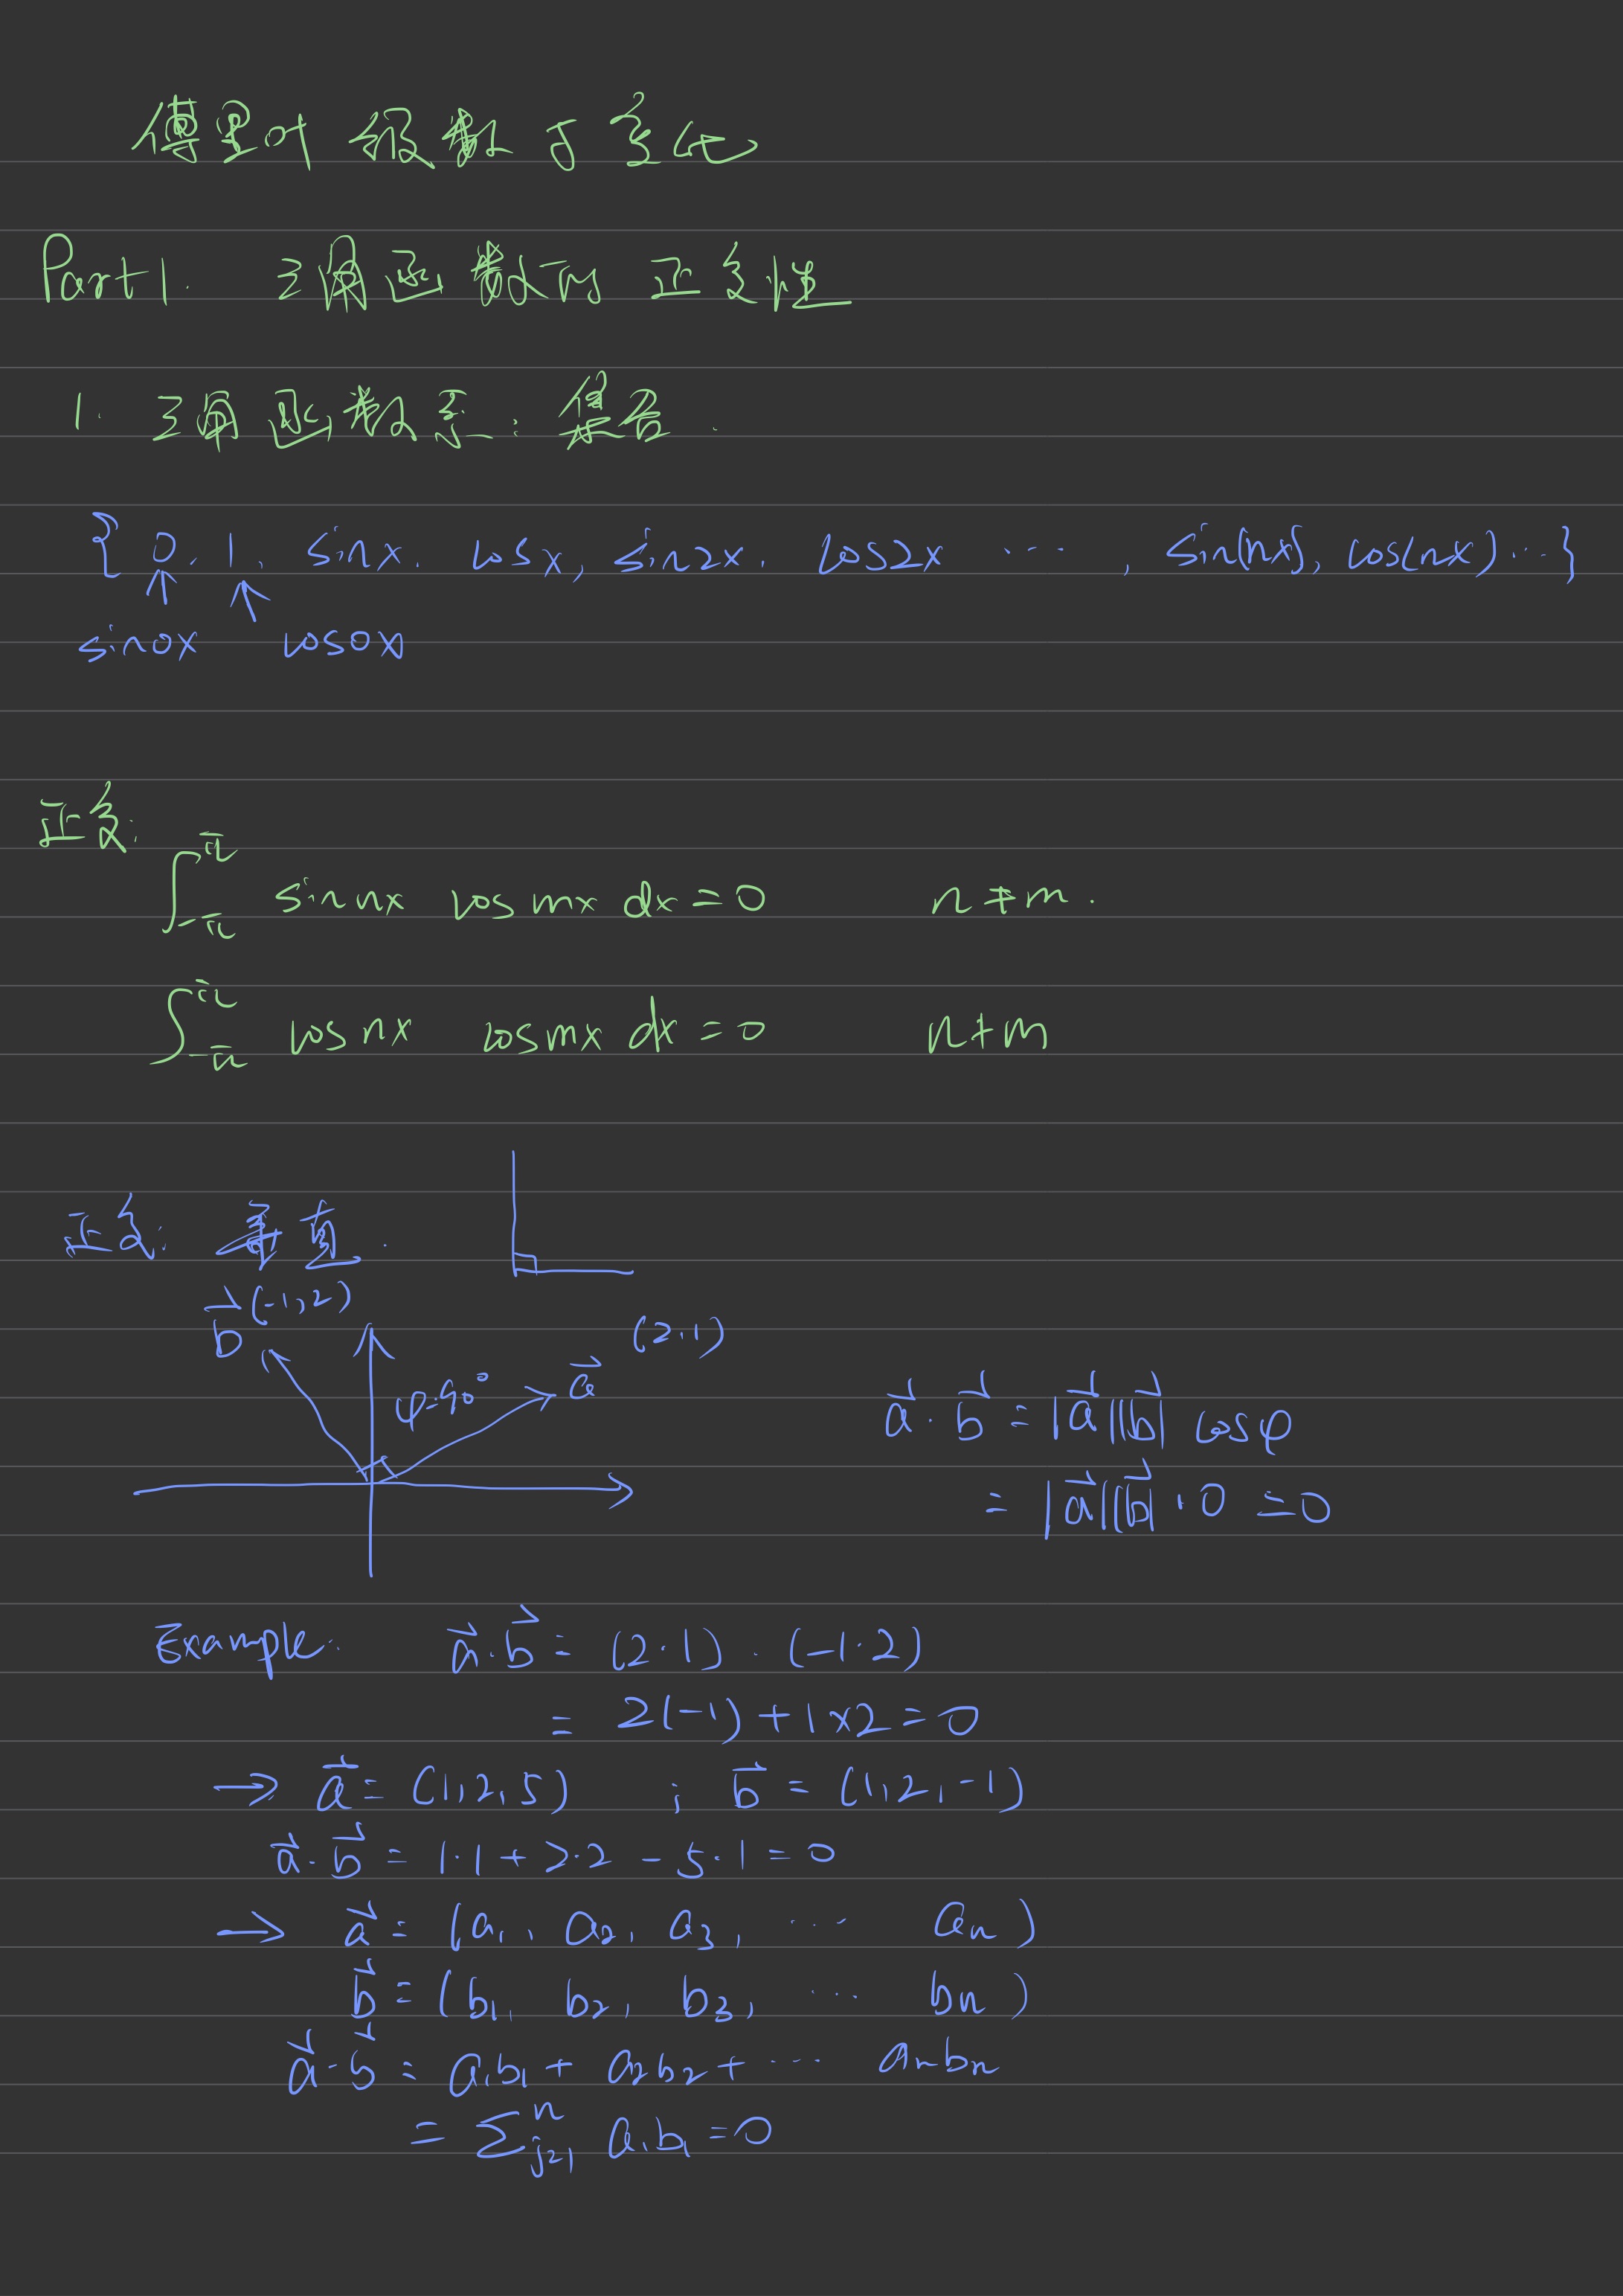 傅里叶级数与变化
Part1. 三角函数的正交性
1. 三角函数系：集合.
{ 0, 1, sinx, cosx, sin2x, cos2x ..., sin(nx), cos(nx)... }
sin0x cos0x
正交:
∫_{-π}^{π} sin nx cos mx dx = 0 n≠m.
∫_{-π}^{π} cos nx cos mx dx = 0 n≠m
正交: 垂直.
b⃗ (-1,2)
(2,1)
φ=90° a⃗
a⃗·b⃗ = |a⃗||b⃗| cosφ
= |a⃗||b⃗|·0 = 0
Example: a⃗·b⃗ = (2,1)·(-1,2)
= 2(-1)+1×2=0
→ a⃗ = (1,2,5) ; b⃗ = (1,2,-1)
a⃗·b⃗ = 1·1+2·2-5·1=0
→ a⃗ = (a₁, a₂, a₃, ... aₙ)
b⃗ = (b₁, b₂, b₃, ... bₙ)
a⃗·b⃗ = a₁b₁+a₂b₂+... aₙbₙ
= ∑_{i=1}^{n} aᵢbᵢ = 0